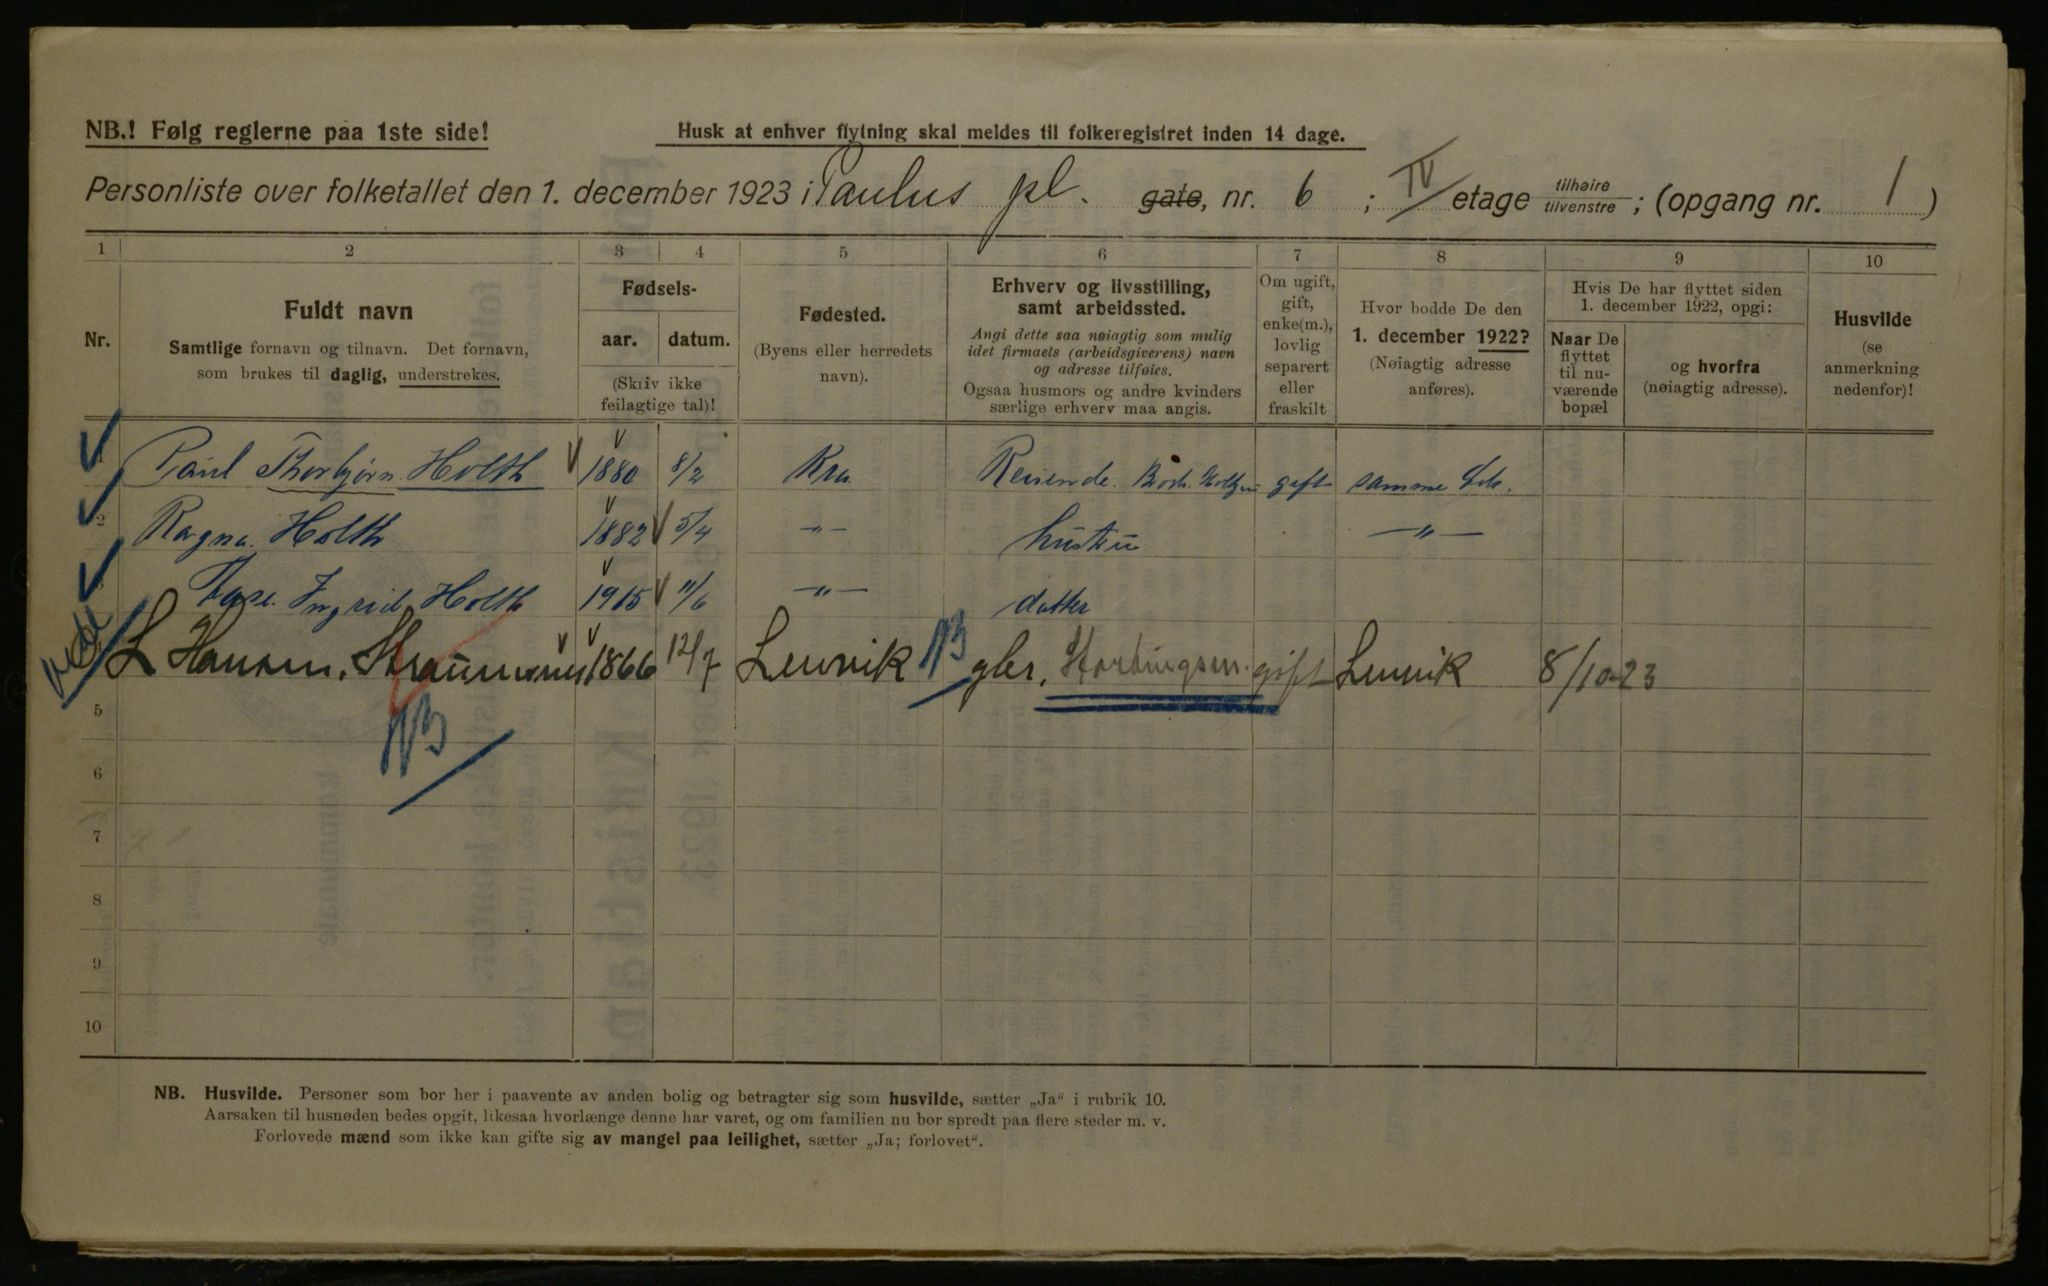 NB.! Følg reglerne paa 1ste side!
Husk at enhver flytning skal meldes til folkeregistret inden 14 dage.
Personliste over folketallet den 1. december 1923 i Paulus pl. gate, nr. 6 ; IV etage tilhøire tilvenstre ; (opgang nr. 1 )
1 2 3 4 5 6 7 8 9 10
Nr.
Fuldt navn
Samtlige fornavn og tilnavn. Det fornavn,
som brukes til daglig, understrekes.
Fødsels-
aar. datum.
(Skriv ikke
feilagtige tal)!
Fødested.
(Byens eller herredets
navn).
Erhverv og livsstilling,
samt arbeidssted.
Angi dette saa nøiagtig som mulig
idet firmaets (arbeidsgiverens) navn
og adresse tilføies.
Ogsaa husmors og andre kvinders
særlige erhverv maa angis.
Om ugift,
gift,
enke(m.),
lovlig
separert
eller
fraskilt
Hvor bodde De den
1. december 1922?
(Nøiagtig adresse
anføres).
Hvis De har flyttet siden
1. december 1922, opgi:
Naar De
flyttet
til nu-
værende
bopæl
og hvorfra
(nøiagtig adresse).
Husvilde
(se
anmerkning
nedenfor)!
Paul Thorbjørn Holth 1880 8/2 Kra Reisende gift samme
2 Ragna Holth 1882 5/4 -"- hustru -"-
Ingrid Holth 1915 11/6 -"- datter
L Hansen, Straumsnes 1866 12/7 Lenvik NB gbr, Stortingsm. gift Lenvik 8/10-23
NB
5
6
7
8
9
10
NB. Husvilde. Personer som bor her i paavente av anden bolig og betragter sig som husvilde, sætter „Ja“ i rubrik 10.
Aarsaken til husnøden bedes opgit, likesaa hvorlænge denne har varet, og om familien nu bor spredt paa flere steder m. v.
Forlovede mænd som ikke kan gifte sig av mangel paa leilighet, sætter „Ja; forlovet“.